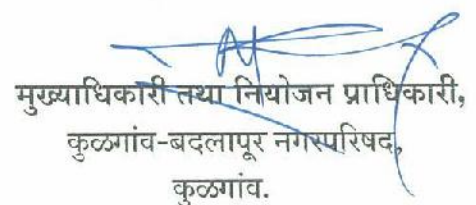 मुख्याधिकारी तथा नियोजन प्राधिकारी,
कुळगांव-बदलापूर नगरपरिषद,
कुळगांव.